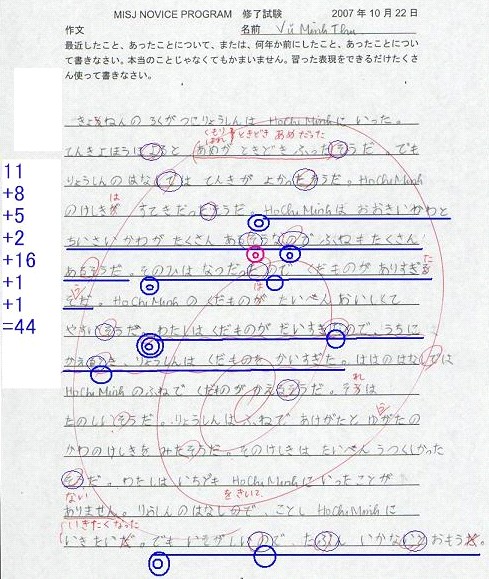 MISJ NOVICE PROGRAM 修了試験 2007年10月22日
作文 名前 Vũ Minh Thu
最近したこと、あったことについて、または、何年か前にしたこと、あったことについ
て書きなさい。本当のことじゃなくてもかまいません。習った表現をできるだけたくさ
ん使って書きなさい。
きょねんの ろくがつに りょうしんは HoChiMinhに いった。
くもり ときどき あめだった
はれ
てんきよほうは よると あめが ときどき ふったそうだ。でも
りょうしんのはなしでは てんきが よかったそうだ。HoChiMinh
は
のけしきが すてきだったそうだ。HoChiMinhは おおきいかわと
ちいさいかわが たくさん あるそうなので ふねもたくさん
た
あるそうだ。そのひは なつだったので くだものが ありすぎる
は
そだ。HoChiMinhの くだものが たいへん おいしくて
やすいそうだ。わたしは くだものが だいすきなので、うちに
かえるとき、りょうしんは くだものを かいすぎた。ははのはなしでは
HoChiMinhのふねで くだものが かえるそうだ。それは
れ
たのしいそうだ。りょうしんは ふねで あけがたと ゆがたの
かわのけしきを みたそうだ。そのけしきは たいへん うつくしかった
そうだ。わたしは いちども HoChiMinhに いったことが
ない をきいて、
ありません。りょうしんのはなしで、ことし HoChiMinhに
いきたくなった
いきたいだ。でも いそがしいので、たぶん いかないと おもう
11
+8
+5
+2
+16
+1
+1
=44